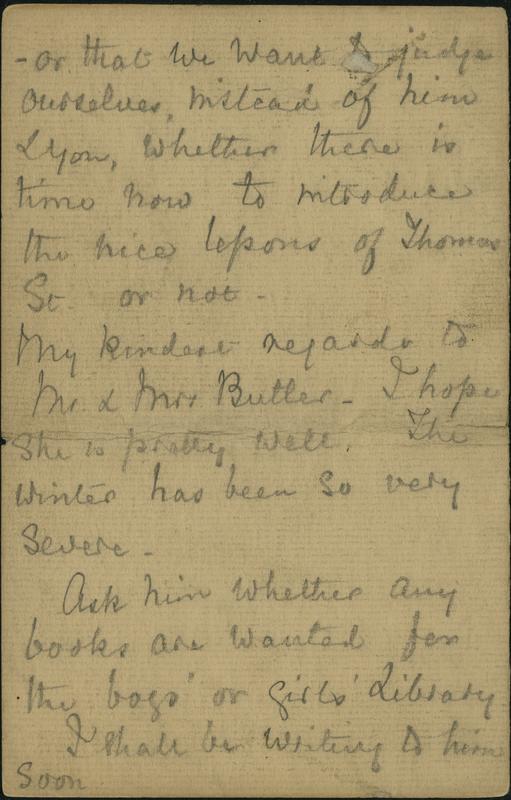 - or that we want to judge
ourselves, instead of him
Lyon, whether there is
time now to introduce
the nice lessons of Thomas
St. or not -
My kindest regards to
Mr. & Mrs Butler - I hope
She is pretty well. The
winter has been so very
severe -
Ask him whether any
books are wanted for
the boys' or girls' Library
I shall be writing to him
soon